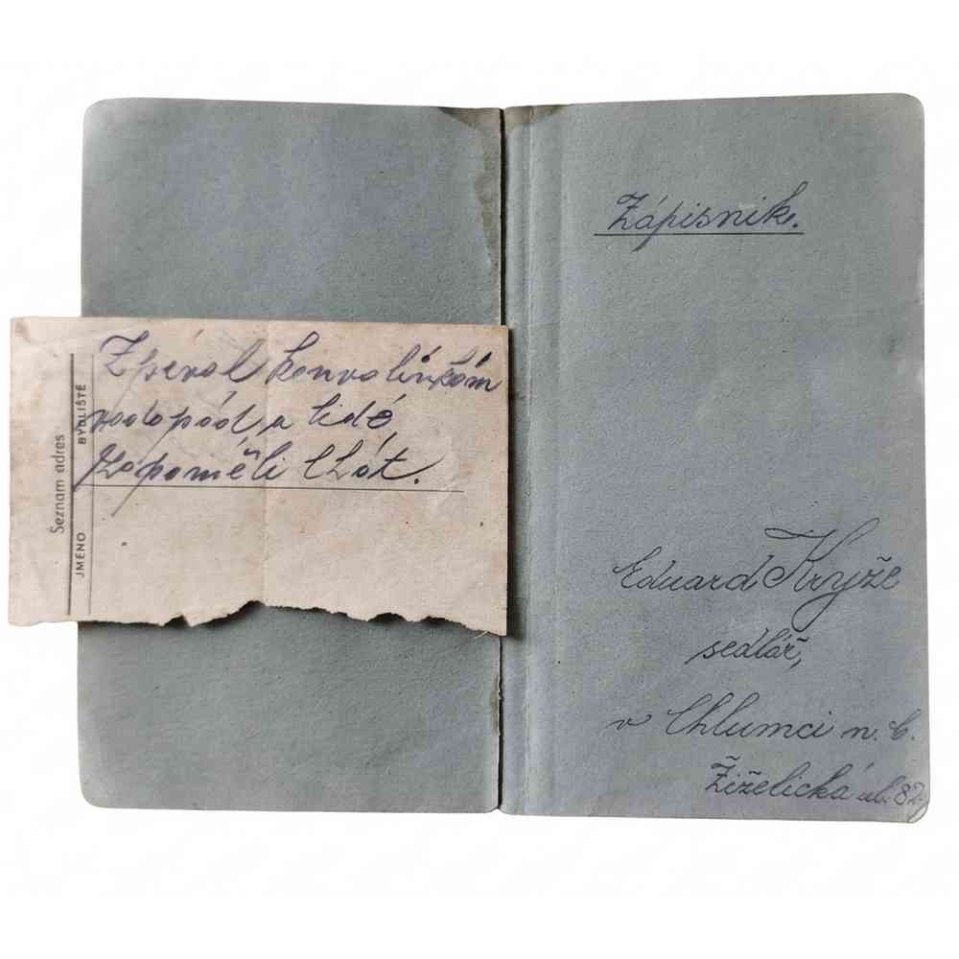 Zpíval konvalinkám
vodopád a lidé
zapoměli lhát.
Seznam adres
JMÉNO BYDLIŠTĚ
Zápisník.
Eduard Kryže
sedlář,
v Chlumci n. C.
Žiželická ul. 82